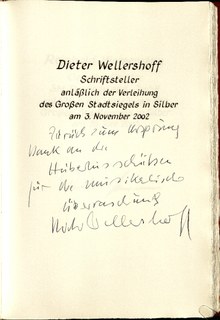 Dieter Wellershoff
Schriftsteller
anläßlich der Verleihung
des Großen Stadtsiegels in Silber
am 3. November 2002
Zurück zum Ursprung
Dank an die
Hubertusschützen
für die musikalische
Überraschung
Dieter Wellershoff